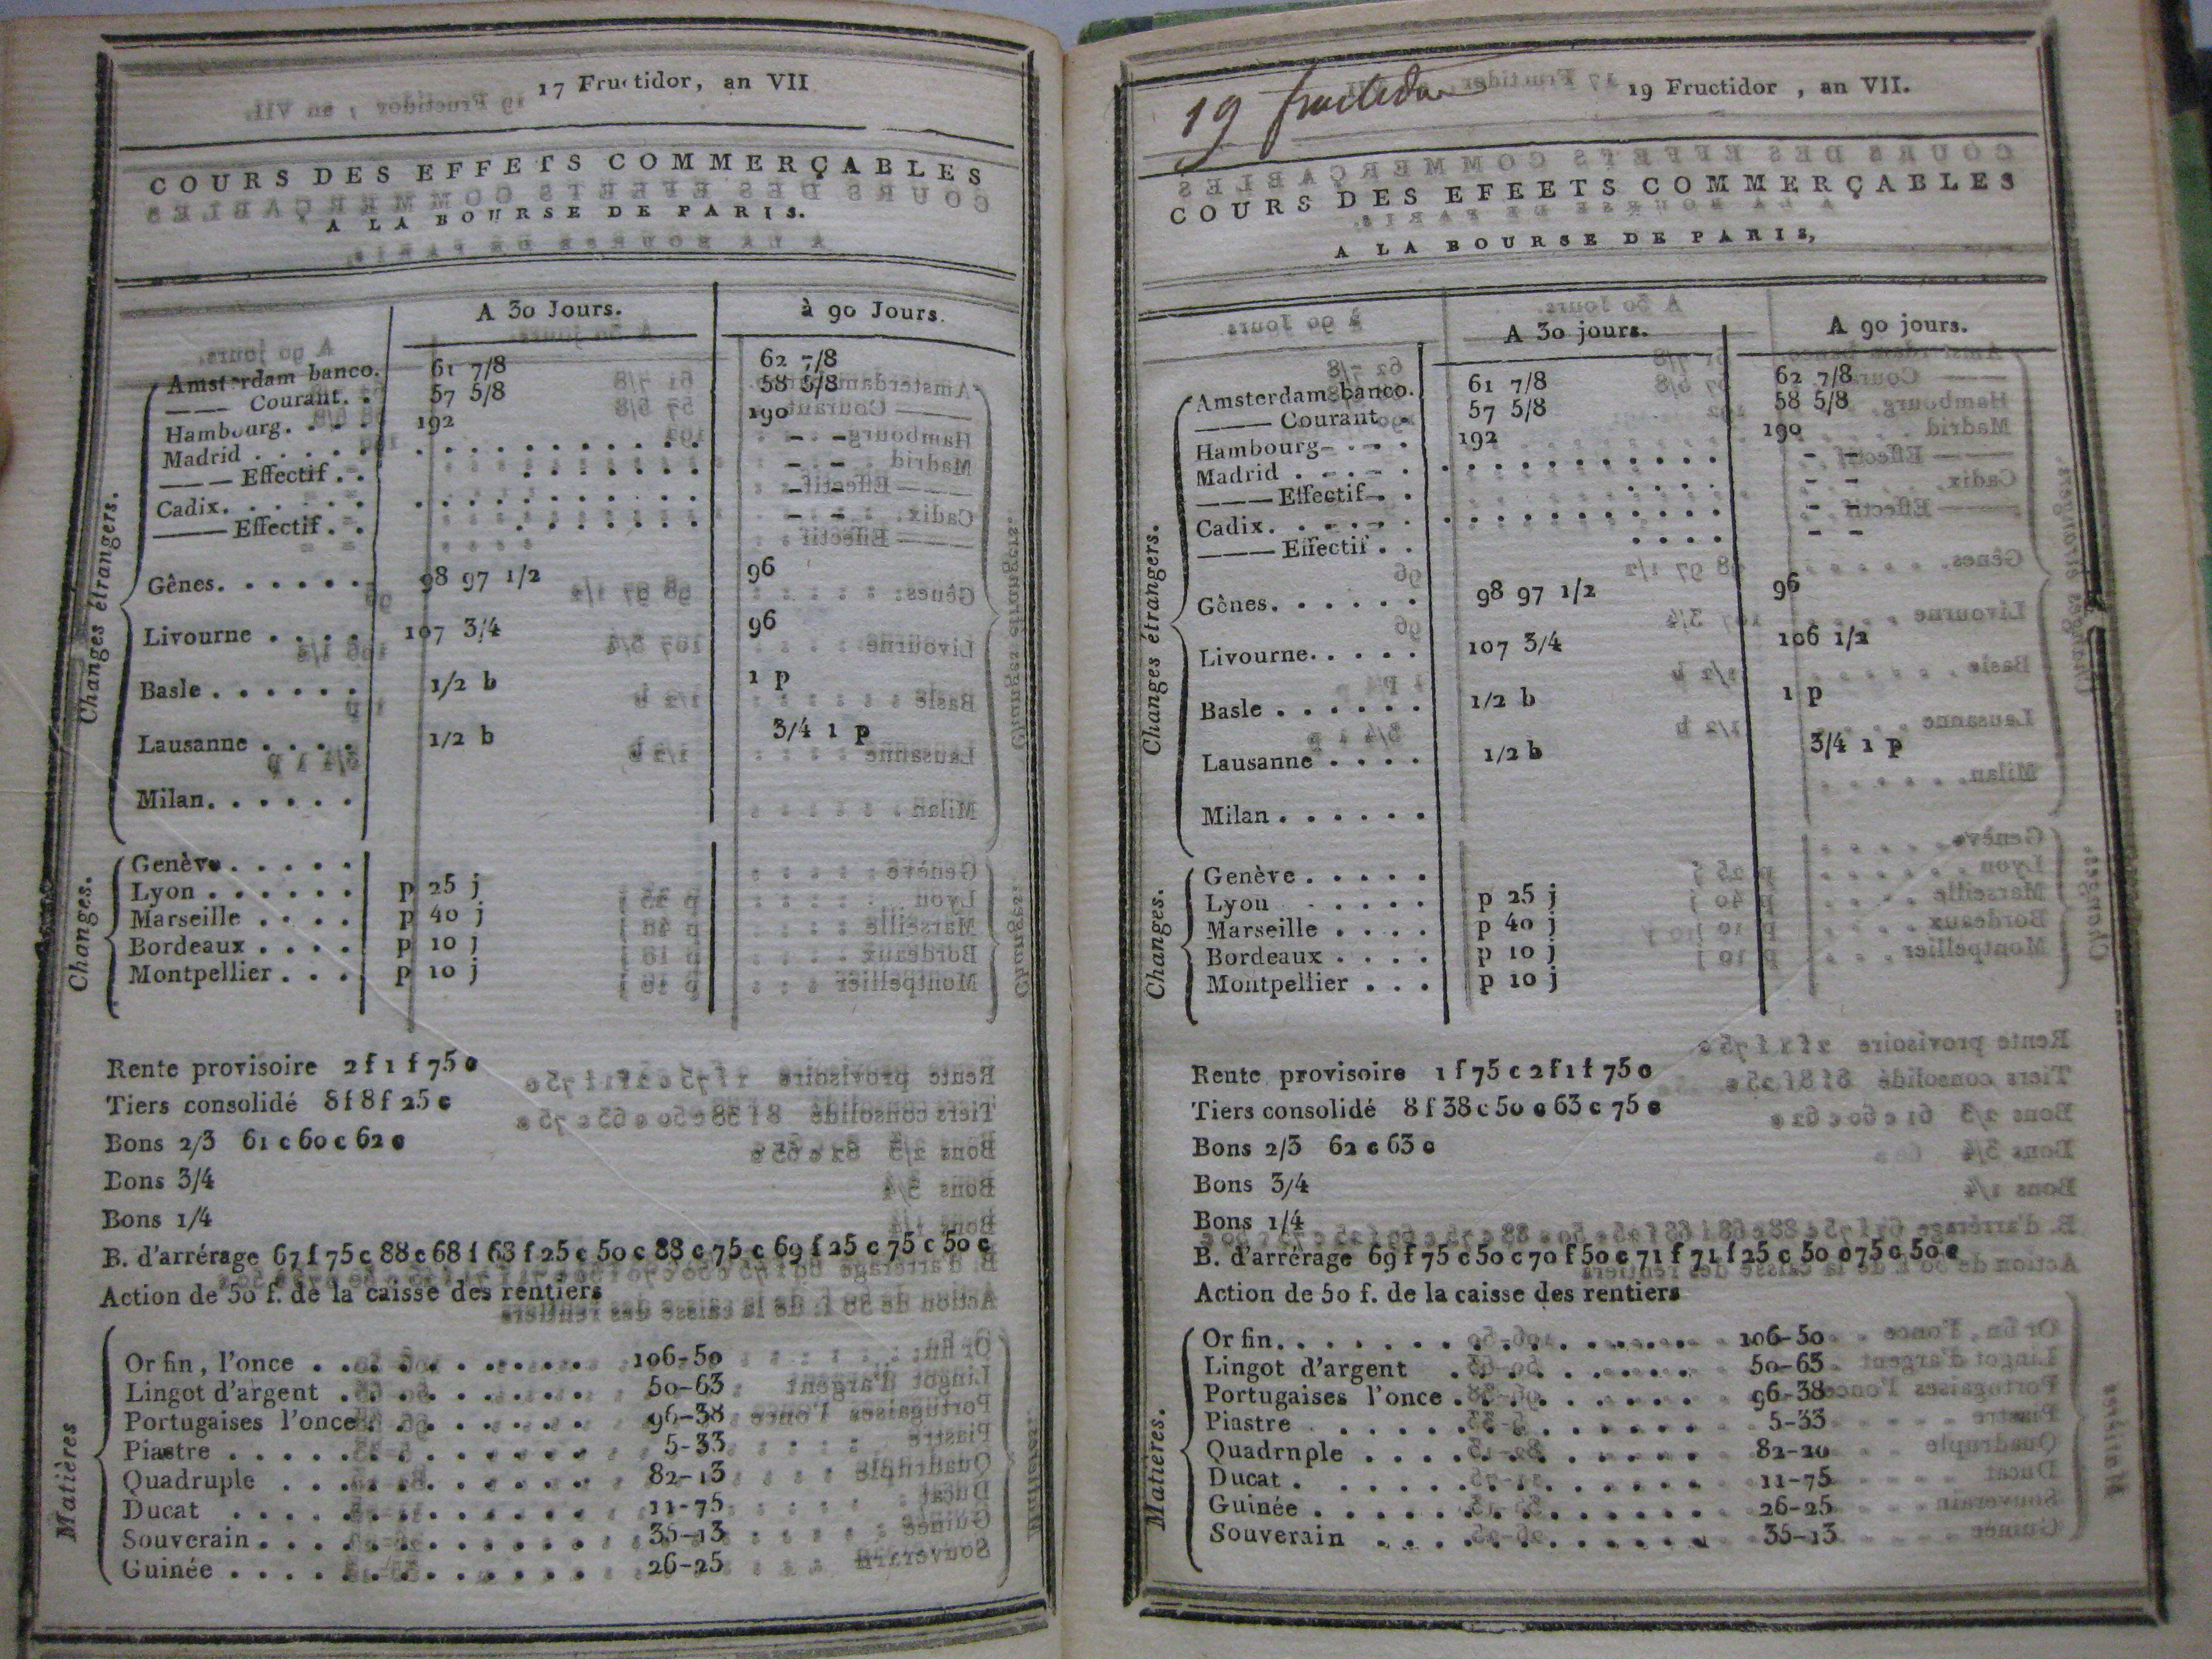 17 Fructidor, an VII
COURS DES EFFETS COMMERÇABLES
A LA BOURSE DE PARIS.
A 30 Jours. à 90 Jours.
Changes étrangers.
Amsterdam banco. 61 7/8 62 7/8
——— Courant. . 57 5/8 58 5/8
Hambourg. . . . 192 190
Madrid . . . . . . . . . . . . . . . – –
——— Effectif . . . . . . . . . – –
Cadix. . . . . . . . . . . . . . . . – –
——— Effectif . . . . . . . . .
Gênes. . . . . . 98 97 1/2 96
Livourne . . . . 107 3/4 96
Basle . . . . . . 1/2 b 1 p
Lausanne . . . . 1/2 b 3/4 1 p
Milan. . . . . .
Changes.
Genève. . . . .
Lyon . . . . . . p 25 j
Marseille . . . . p 40 j
Bordeaux . . . . p 10 j
Montpellier . . . p 10 j
Rente provisoire 2 f 1 f 75 c
Tiers consolidé 8 f 8 f 25 c
Bons 2/3 61 c 60 c 62 c
Bons 3/4
Bons 1/4
B. d'arrérage 67 f 75 c 88 c 68 f 63 f 25 c 50 c 88 c 75 c 69 f 25 c 75 c 50 c
Action de 50 f. de la caisse des rentiers
Matières
Or fin, l'once . . . . . . . . . . 106-50
Lingot d'argent . . . . . . . . . 50-63
Portugaises l'once . . . . . . . . 96-38
Piastre . . . . . . . . . . . . . 5-33
Quadruple . . . . . . . . . . . 82-13
Ducat . . . . . . . . . . . . . 11-75
Souverain . . . . . . . . . . . . 35-13
Guinée . . . . . . . . . . . . . 26-25
19 fructidor
19 Fructidor , an VII.
COURS DES EFEETS COMMERÇABLES
A LA BOURSE DE PARIS,
A 30 jours. A 90 jours.
Changes étrangers.
Amsterdam banco. 61 7/8 62 7/8
——— Courant . 57 5/8 58 5/8
Hambourg . . . 192 190
Madrid . . . . . . . . . . . . . . . – –
——— Effectif . . . . . . – –
Cadix. . . . . . . . . . . . . . . . – –
——— Effectif . . . . . . – –
Gênes. . . . . . 98 97 1/2 96
Livourne. . . . . 107 3/4 106 1/2
Basle . . . . . . 1/2 b 1 p
Lausanne . . . . 1/2 b 3/4 1 p
Milan . . . . . .
Changes.
Genève . . . . .
Lyon . . . . . p 25 j
Marseille . . . . p 40 j
Bordeaux . . . . p 10 j
Montpellier . . . p 10 j
Rente provisoire 1 f 75 c 2 f 1 f 75 c
Tiers consolidé 8 f 38 c 50 c 63 c 75 c
Bons 2/3 62 c 63 c
Bons 3/4
Bons 1/4
B. d'arrérage 69 f 75 c 50 c 70 f 50 c 71 f 71 f 25 c 50 c 75 c 50 c
Action de 50 f. de la caisse des rentiers
Matières.
Or fin. . . . . . . . . . . . . . 106-50
Lingot d'argent . . . . . . . . . 50-63
Portugaises l'once . . . . . . . . 96-38
Piastre . . . . . . . . . . . . . 5-33
Quadrnple . . . . . . . . . . . 82-20
Ducat . . . . . . . . . . . . . 11-75
Guinée . . . . . . . . . . . . . 26-25
Souverain . . . . . . . . . . . . 35-13